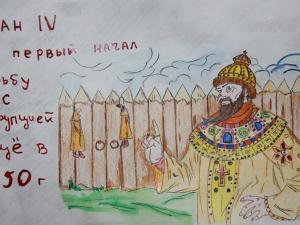 АН IV
первый начал
ьбу
с
рупцией
щё в
50 г